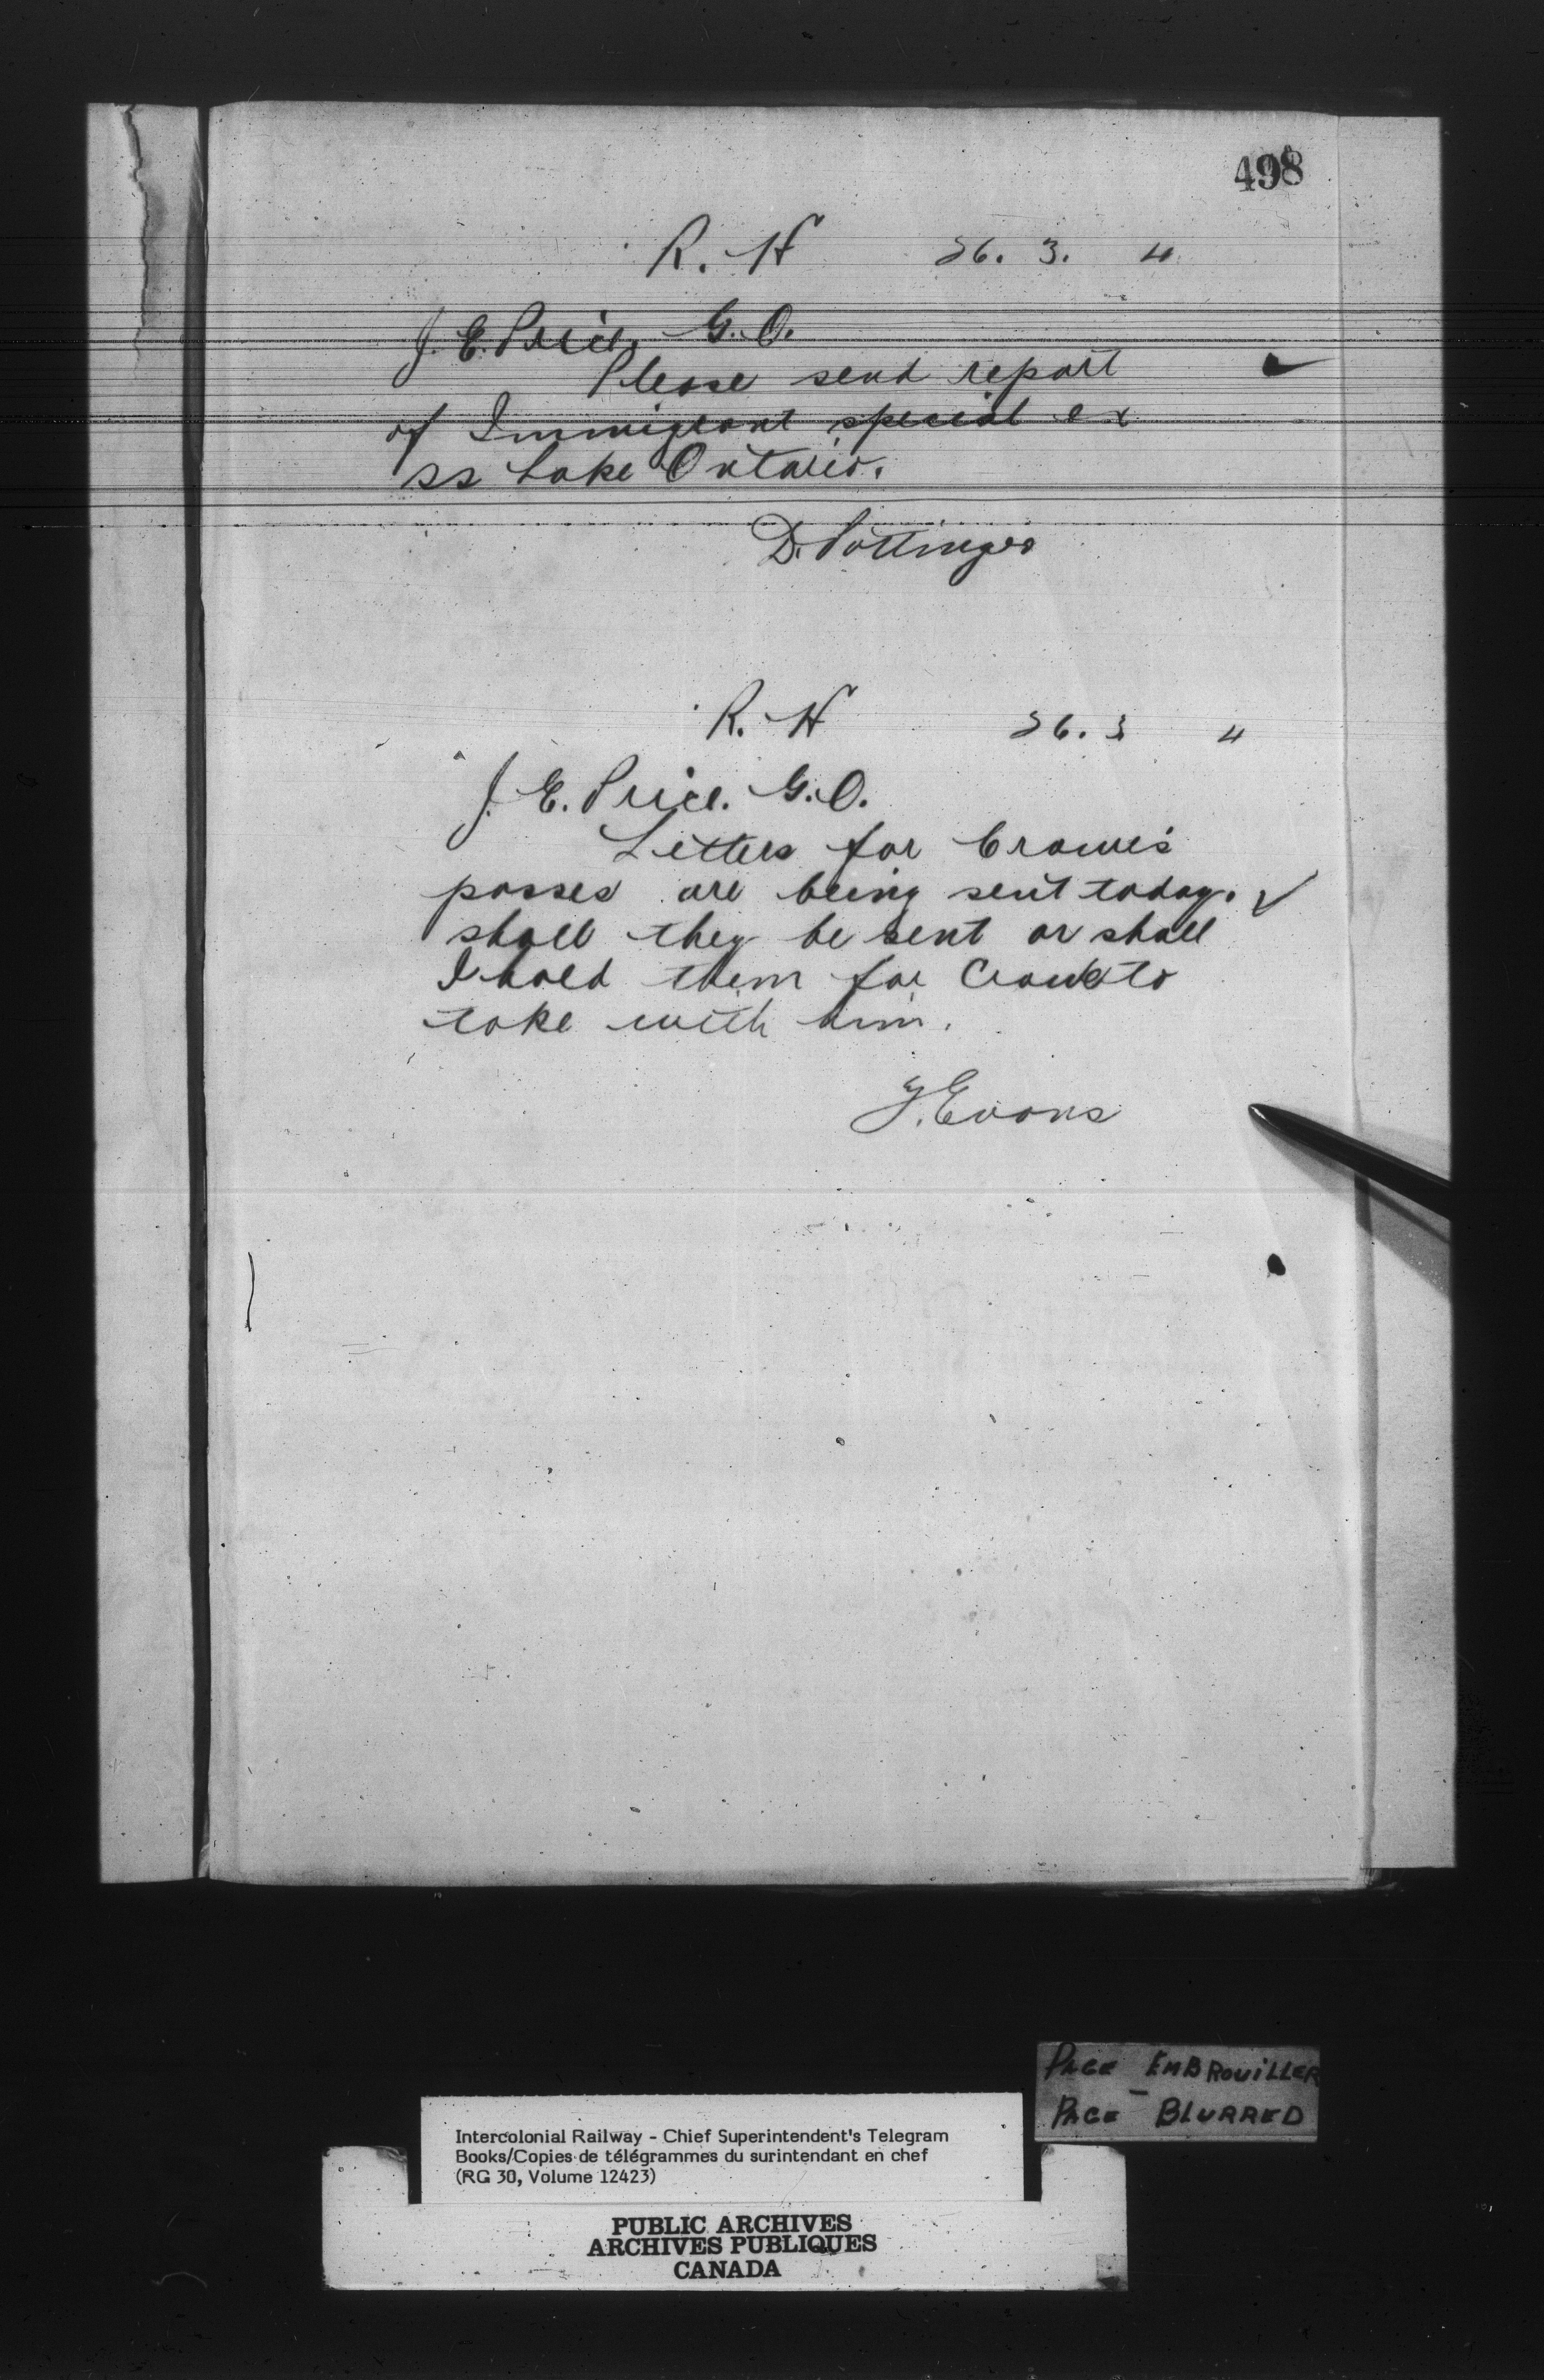 498
R. H 26. 3. 4
J. E. Price, G. O.
Please send report
of Immigrant special ex
ss Lake Ontario.
D. Pottinger
R. H 26. 3 4
J. E. Price. G. O.
Letters for Crowe's
passes are being sent today.
shall they be sent or shall
I hold them for Crowe to
take with him.
Y. Evans
PAGE EMBROUILLER
PAGE BLURRED
Intercolonial Railway - Chief Superintendent's Telegram
Books/Copies de télégrammes du surintendant en chef
(RG 30, Volume 12423)
PUBLIC ARCHIVES
ARCHIVES PUBLIQUES
CANADA